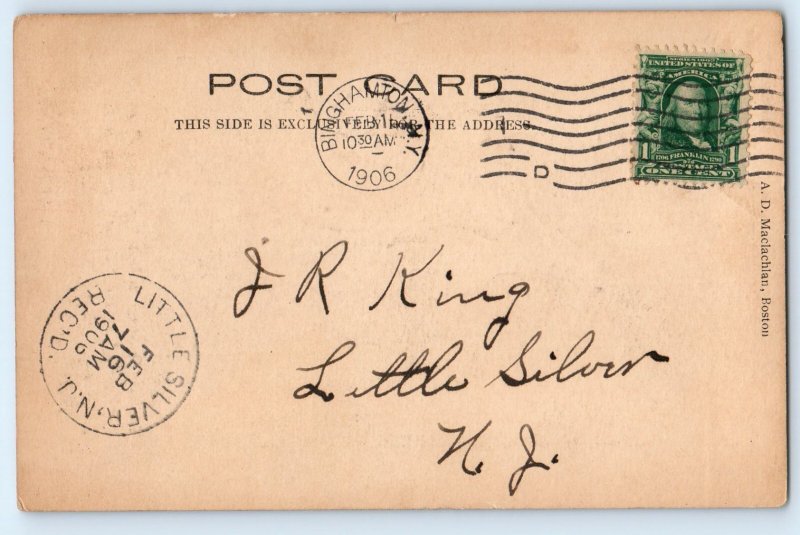 POST CARD
THIS SIDE IS EXCLUSIVELY FOR THE ADDRESS.
BINGHAMTON, N.Y.
FEB 15
10 30 AM
1906
D
SERIES 1902
UNITED STATES OF
AMERICA
1706 FRANKLIN 1790
POSTAGE
1 1
ONE CENT
A. D. Maclachlan, Boston
J R King
Little Silver
N. J.
LITTLE SILVER, N.J.
FEB
16
7 AM
1906
REC'D.